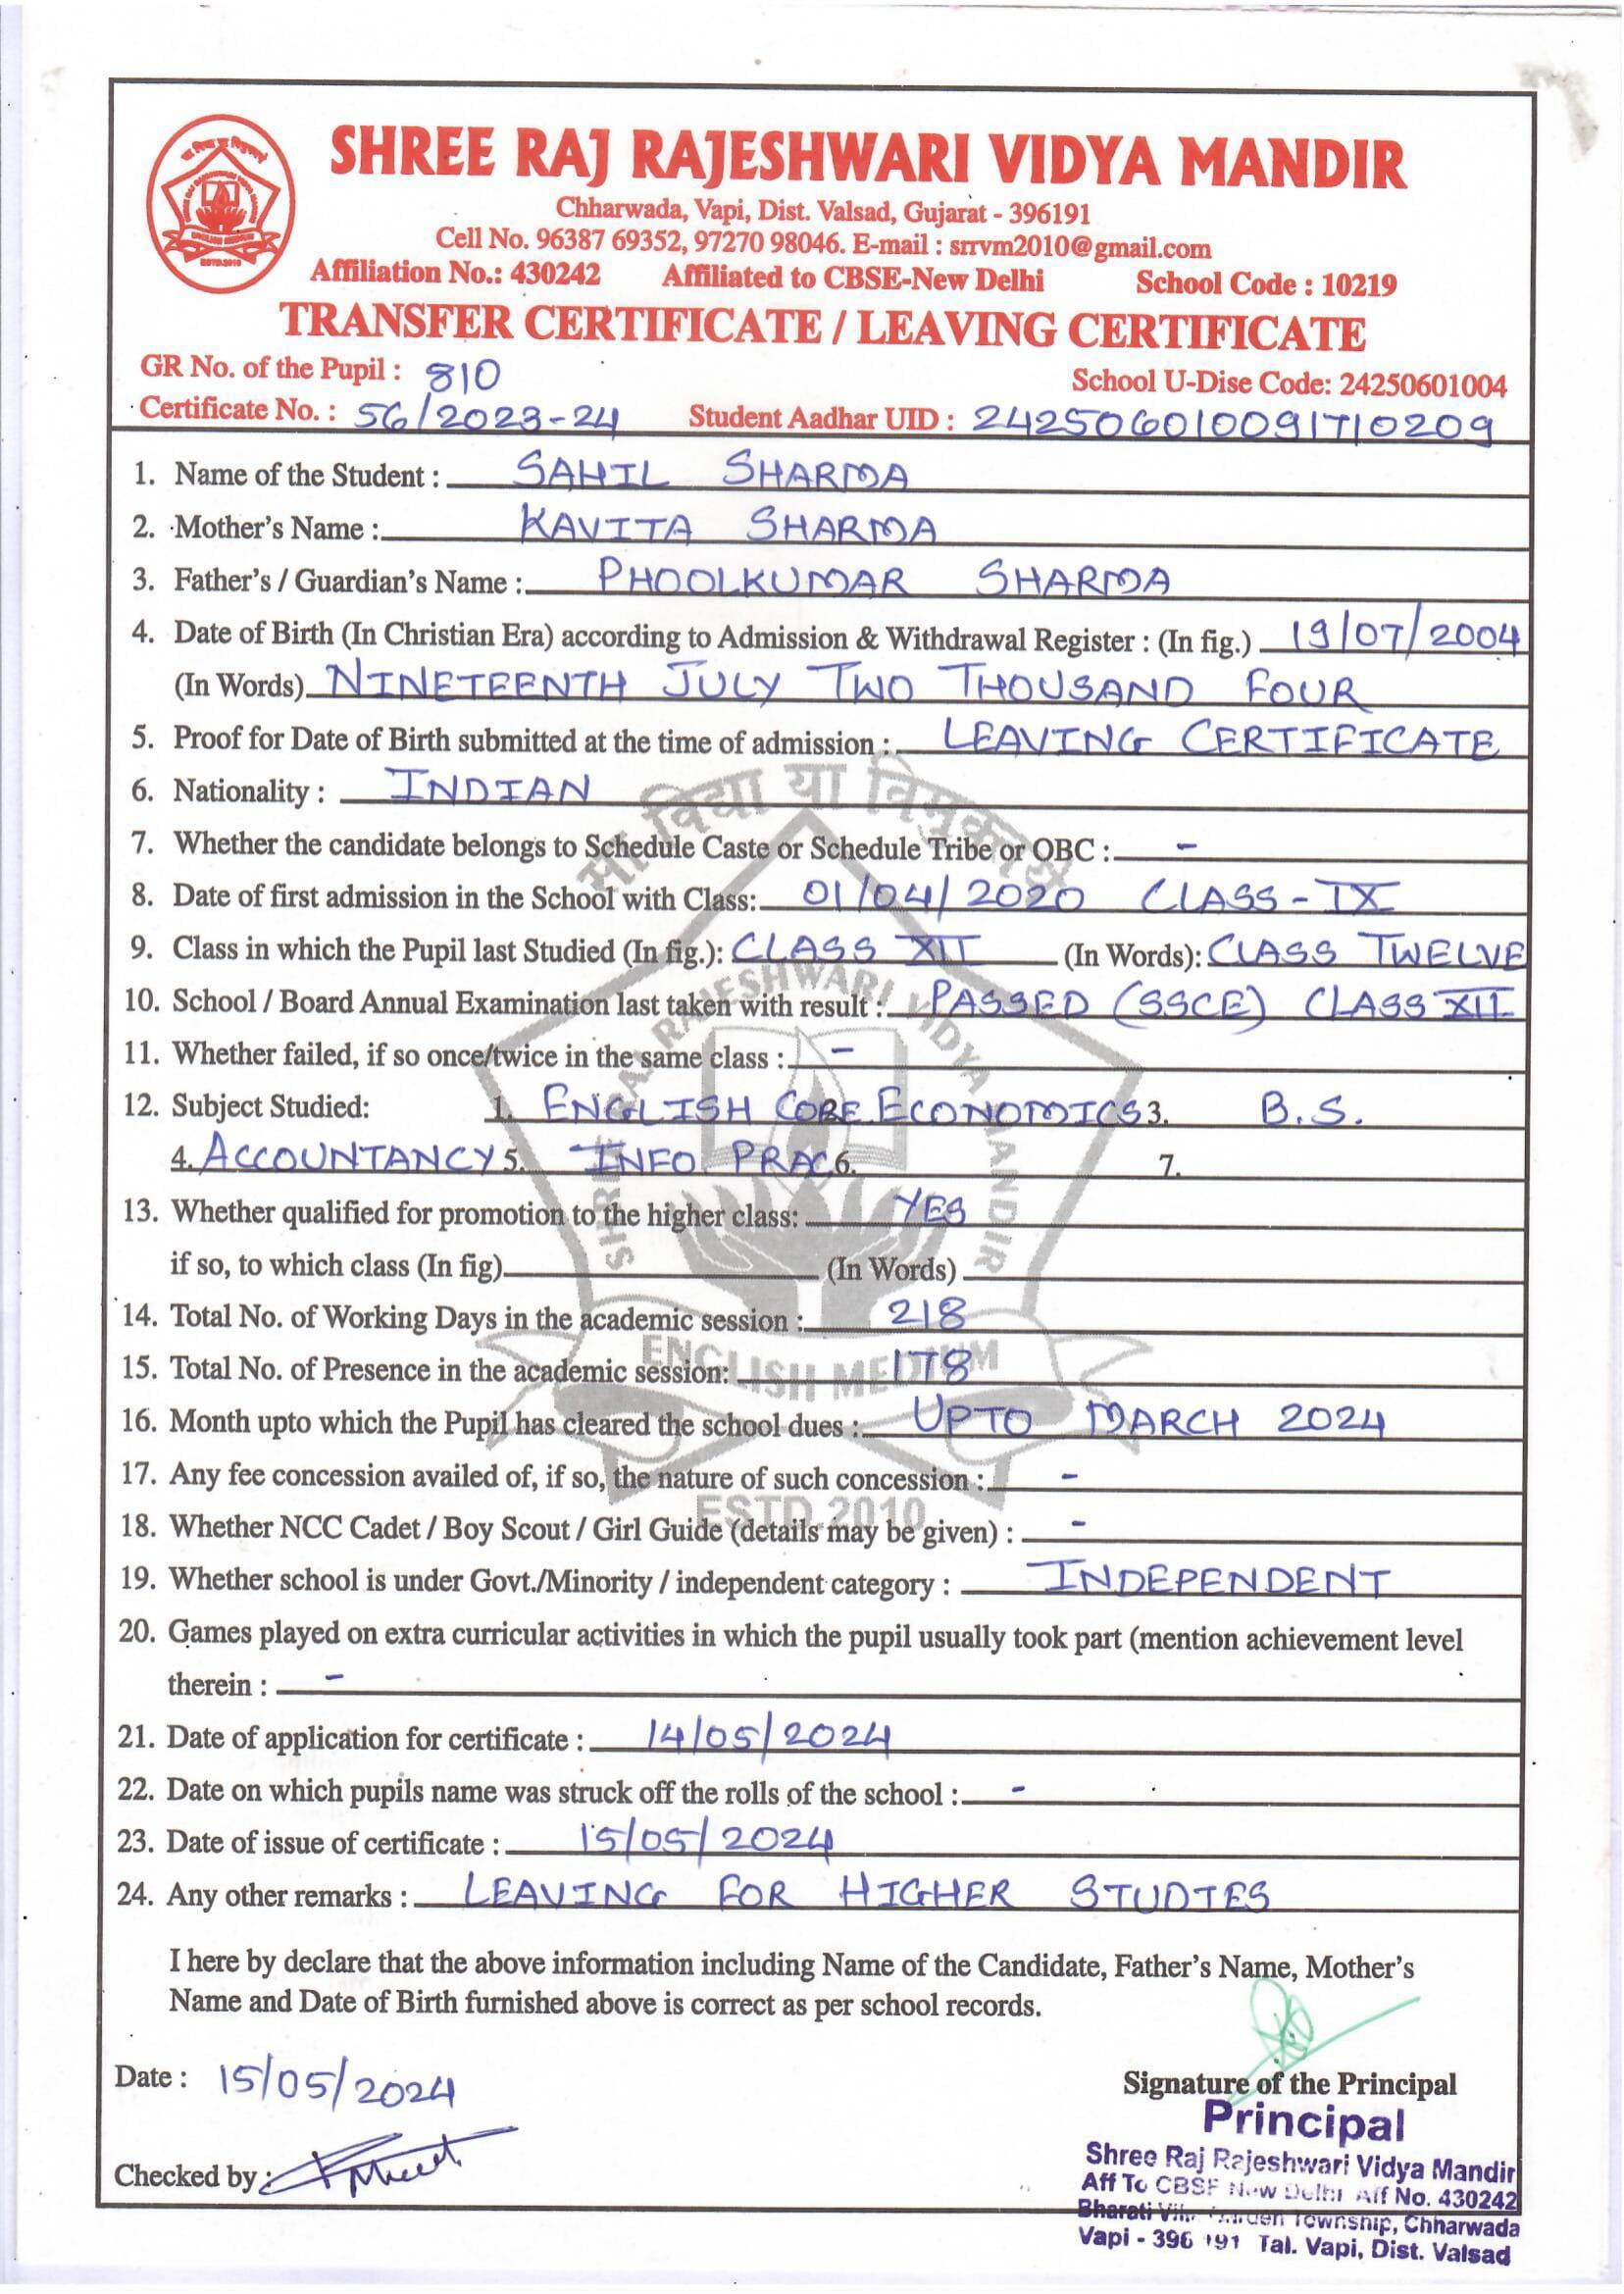 SHREE RAJ RAJESHWARI VIDYA MANDIR
Chharwada, Vapi, Dist. Valsad, Gujarat - 396191
Cell No. 96387 69352, 97270 98046. E-mail : srrvm2010@gmail.com
Affiliation No.: 430242 Affiliated to CBSE-New Delhi School Code : 10219
TRANSFER CERTIFICATE / LEAVING CERTIFICATE
GR No. of the Pupil : 810 School U-Dise Code: 24250601004
Certificate No. : 56/2023-24 Student Aadhar UID : 242506010091710209
1. Name of the Student : SAHIL SHARMA
2. Mother's Name : KAVITA SHARMA
3. Father's / Guardian's Name : PHOOLKUMAR SHARMA
4. Date of Birth (In Christian Era) according to Admission & Withdrawal Register : (In fig.) 19/07/2004
(In Words) NINETEENTH JULY TWO THOUSAND FOUR
5. Proof for Date of Birth submitted at the time of admission : LEAVING CERTIFICATE
6. Nationality : INDIAN
7. Whether the candidate belongs to Schedule Caste or Schedule Tribe or OBC : -
8. Date of first admission in the School with Class: 01/04/2020 CLASS - IX
9. Class in which the Pupil last Studied (In fig.): CLASS XII (In Words): CLASS TWELVE
10. School / Board Annual Examination last taken with result : PASSED (SSCE) CLASS XII
11. Whether failed, if so once/twice in the same class : -
12. Subject Studied: 1. ENGLISH CORE 2. ECONOMICS 3. B.S.
4. ACCOUNTANCY 5. INFO. PRAC 6. 7.
13. Whether qualified for promotion to the higher class: YES
if so, to which class (In fig) (In Words)
14. Total No. of Working Days in the academic session : 218
15. Total No. of Presence in the academic session: 178
16. Month upto which the Pupil has cleared the school dues : UPTO MARCH 2024
17. Any fee concession availed of, if so, the nature of such concession : -
18. Whether NCC Cadet / Boy Scout / Girl Guide (details may be given) : -
19. Whether school is under Govt./Minority / independent category : INDEPENDENT
20. Games played on extra curricular activities in which the pupil usually took part (mention achievement level
therein : -
21. Date of application for certificate : 14/05/2024
22. Date on which pupils name was struck off the rolls of the school : -
23. Date of issue of certificate : 15/05/2024
24. Any other remarks : LEAVING FOR HIGHER STUDIES
I here by declare that the above information including Name of the Candidate, Father's Name, Mother's
Name and Date of Birth furnished above is correct as per school records.
Date : 15/05/2024
Signature of the Principal
Principal
Checked by :
Shree Raj Rajeshwari Vidya Mandir
Aff To CBSE New Delhi Aff No. 430242
Bharati Township, Chharwada
Vapi - 396 191 Tal. Vapi, Dist. Valsad
सा विद्या या विमुक्तये
SHREE RAJ RAJESHWARI VIDYA MANDIR
ENGLISH MEDIUM
ESTD.2010